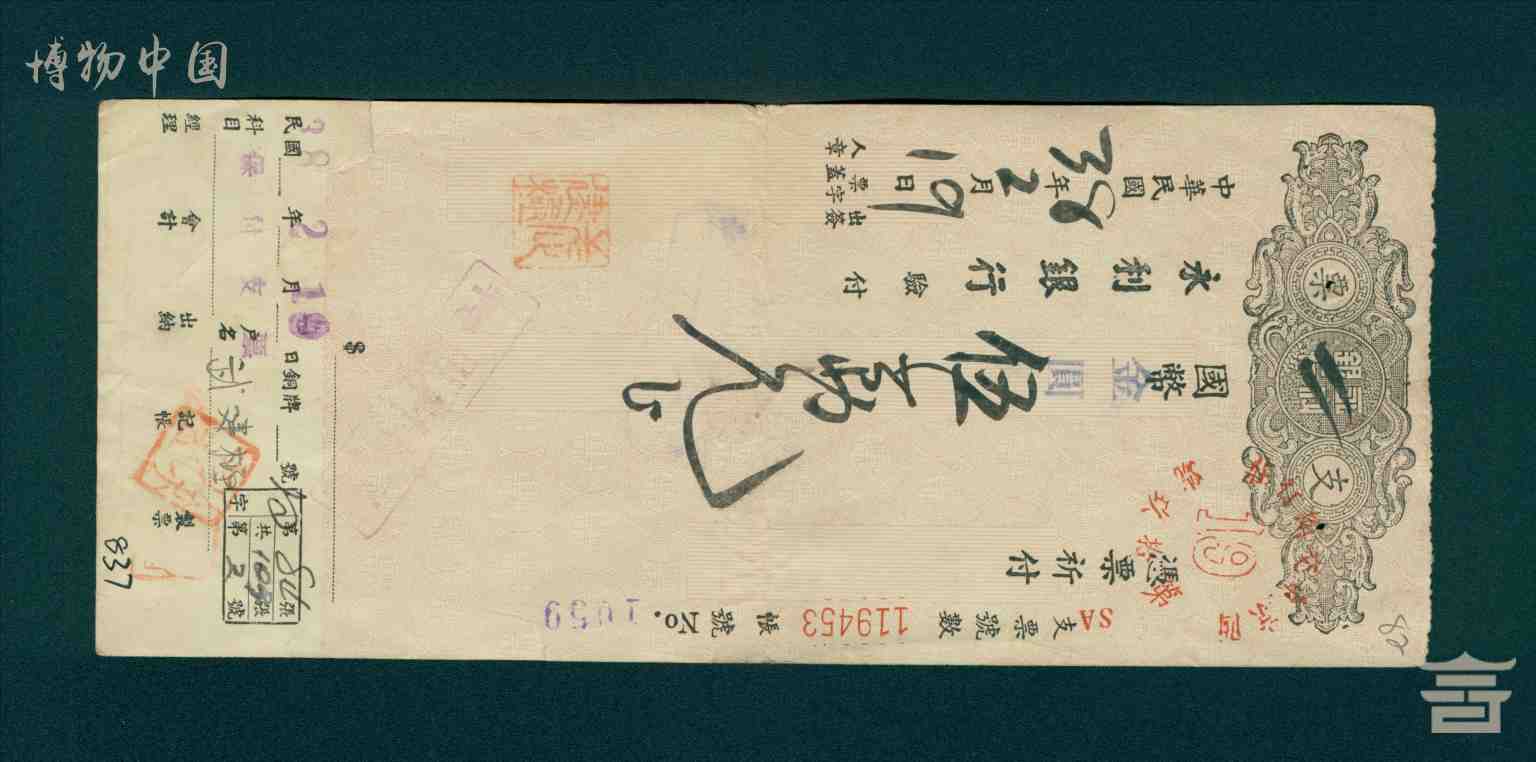 博物中国
支票
SA
支票號數 119453
帳號 No. 1059
憑票祈付
國幣 金圓
伍萬元正
永利銀行 驗付
中華民國 38年2月19日
出票人簽字蓋章
80
$
民國38年2月19日 銅牌 號
科目 保付支票 戶名
經理 會計 出納 記帳 製票
第80張
共109張
字第2號
837